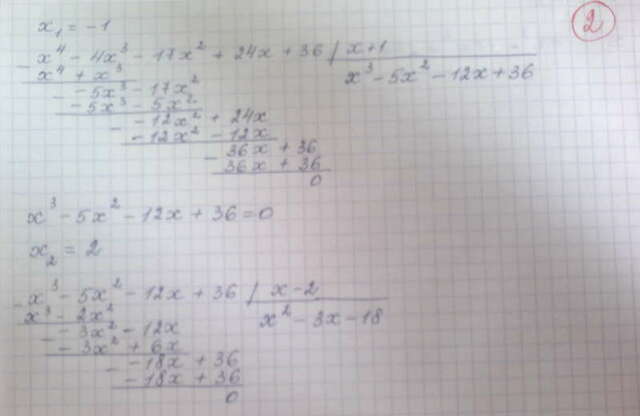 2
x₁ = -1
- x⁴ - 4x³ - 17x² + 24x + 36 | x+1
x⁴ + x³ x³ - 5x² - 12x + 36
- -5x³ - 17x²
-5x³ - 5x²
- -12x² + 24x
-12x² - 12x
- 36x + 36
36x + 36
0
x³ - 5x² - 12x + 36 = 0
x₂ = 2
- x³ - 5x² - 12x + 36 | x - 2
x³ - 2x² x² - 3x - 18
- -3x² - 12x
-3x² + 6x
- -18x + 36
-18x + 36
0